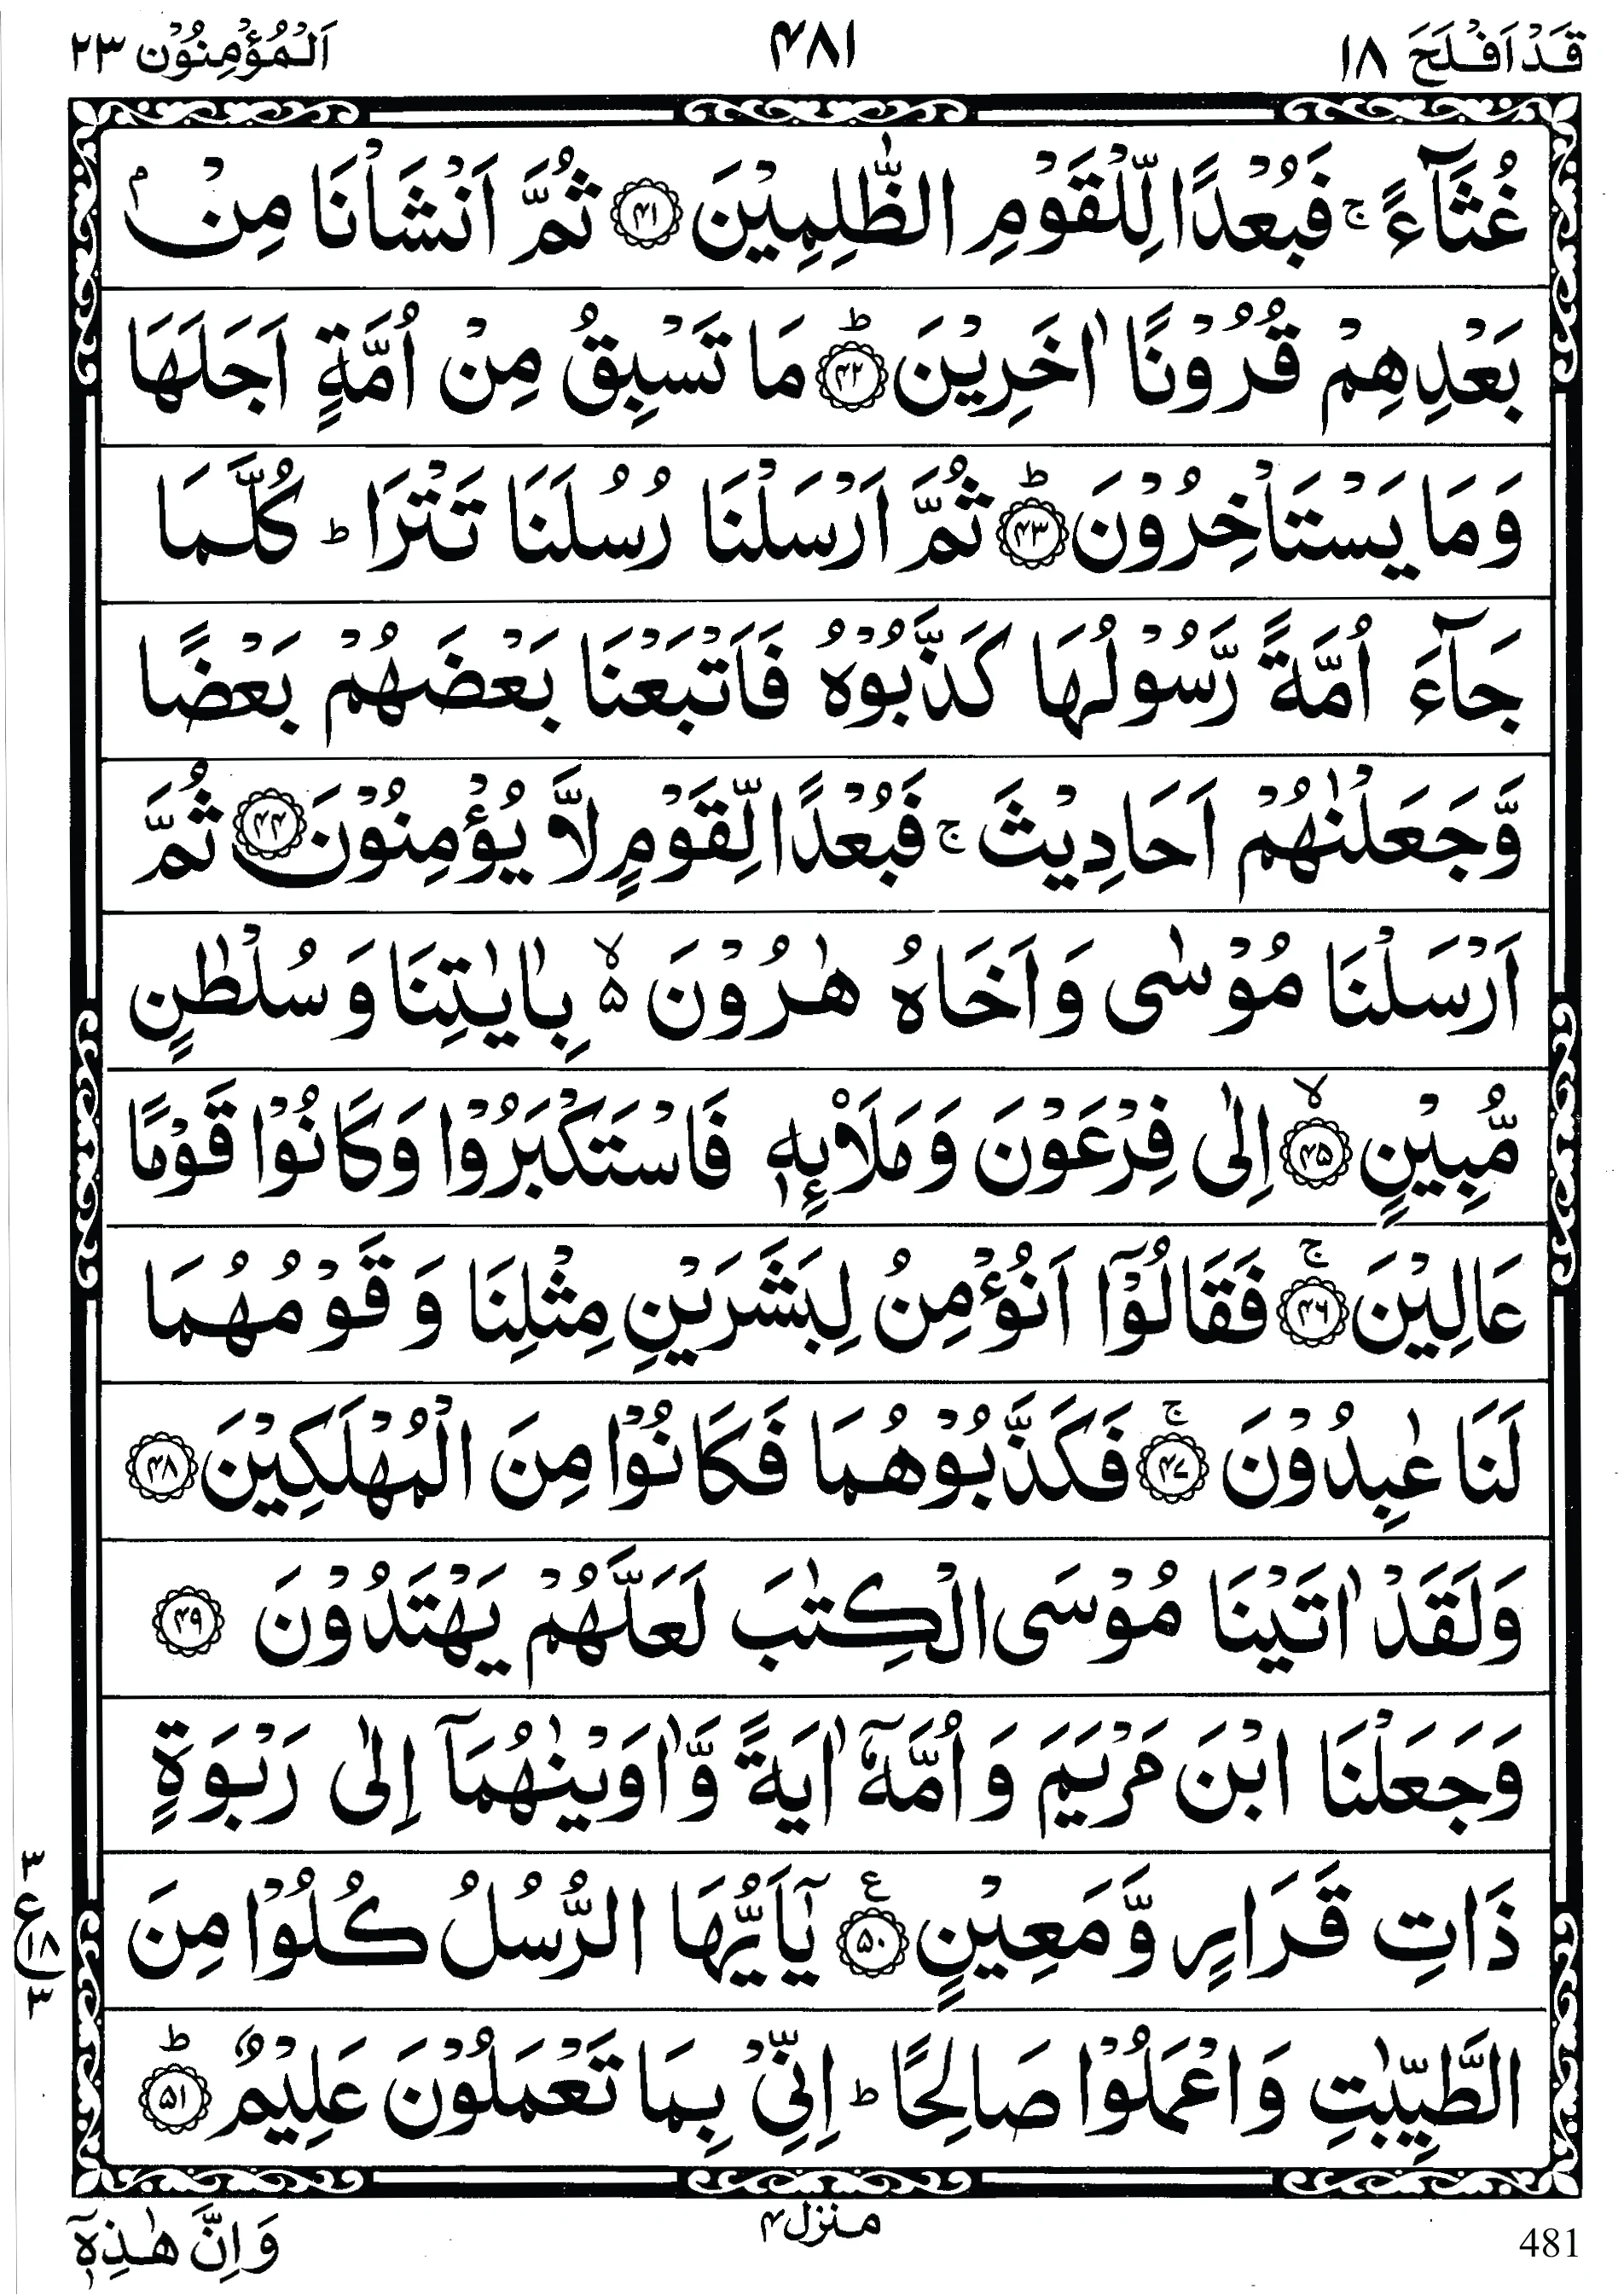 قَدْ اَفْلَحَ ١٨ ۴٨١ اَلْمُؤْمِنُوْن ٢٣
غُثَآءً ۚ فَبُعْدًا لِّلْقَوْمِ الظّٰلِمِيْنَ ﴿۴۱﴾ ثُمَّ اَنْشَاْنَا مِنْۢ
بَعْدِهِمْ قُرُوْنًا اٰخَرِيْنَ ؕ﴿۴۲﴾ مَا تَسْبِقُ مِنْ اُمَّةٍ اَجَلَهَا
وَمَا يَسْتَاْخِرُوْنَ ؕ﴿۴۳﴾ ثُمَّ اَرْسَلْنَا رُسُلَنَا تَتْرَا ؕ كُلَّمَا
جَآءَ اُمَّةً رَّسُوْلُهَا كَذَّبُوْهُ فَاَتْبَعْنَا بَعْضَهُمْ بَعْضًا
وَّجَعَلْنٰهُمْ اَحَادِيْثَ ۚ فَبُعْدًا لِّقَوْمٍ لَّا يُؤْمِنُوْنَ ﴿۴۴﴾ ثُمَّ
اَرْسَلْنَا مُوْسٰى وَاَخَاهُ هٰرُوْنَ ۵ۙ بِاٰيٰتِنَا وَسُلْطٰنٍ
مُّبِيْنٍ ۙ﴿۴۵﴾ اِلٰى فِرْعَوْنَ وَمَلَا۟ئِهٖ فَاسْتَكْبَرُوْا وَكَانُوْا قَوْمًا
عَالِيْنَ ۚ﴿۴۶﴾ فَقَالُوْٓا اَنُؤْمِنُ لِبَشَرَيْنِ مِثْلِنَا وَقَوْمُهُمَا
لَنَا عٰبِدُوْنَ ۚ﴿۴۷﴾ فَكَذَّبُوْهُمَا فَكَانُوْا مِنَ الْمُهْلَكِيْنَ ﴿۴۸﴾
وَلَقَدْ اٰتَيْنَا مُوْسَى الْكِتٰبَ لَعَلَّهُمْ يَهْتَدُوْنَ ﴿۴۹﴾
وَجَعَلْنَا ابْنَ مَرْيَمَ وَاُمَّهٗٓ اٰيَةً وَّاٰوَيْنٰهُمَآ اِلٰى رَبْوَةٍ
ذَاتِ قَرَارٍ وَّمَعِيْنٍ ﴿۵۰﴾ع يٰٓاَيُّهَا الرُّسُلُ كُلُوْا مِنَ
٣
ع ١٨
٣
الطَّيِّبٰتِ وَاعْمَلُوْا صَالِحًا ؕ اِنِّىْ بِمَا تَعْمَلُوْنَ عَلِيْمٌ ؕ﴿۵۱﴾
وَاِنَّ هٰذِهٖٓ منزل۴ 481